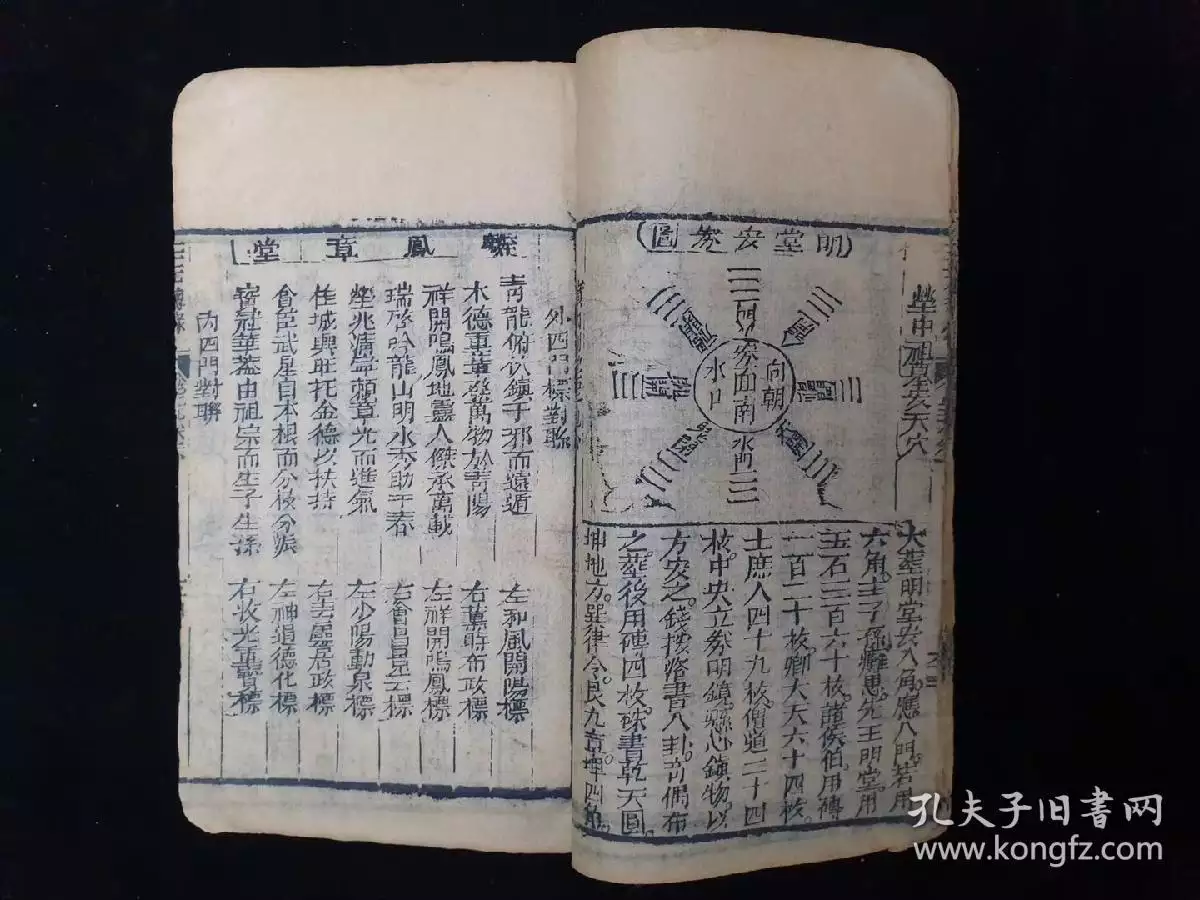 明堂安券圖
向朝
水口
券面南
水門
大塟明堂安八角應八門若用
六角
先王明堂用
玉石三百六十枚諸侯伯用磚
一百二十枚卿大夫六十四枚
士庶人四十九枚僧道二十四
枚中央立券明鏡懸心鎮物以
方安之錢按洛書八卦奇偶布
之塟後用磚四枚硃書乾天圓
坤地方巽律令艮九章埋四角
鳳章堂
外四門標對聯
青龍俯伏鎮千邪而遠遁 左和風開陽標
木德重華發萬物於青陽 右薰時布政標
祥開鳴鳳地靈人傑承萬載 左祥開鳴鳳標
瑞啓吟龍山明水秀助千春
章光而進氣 左少陽動泉標
佳城興旺托金德以扶持
會臣武星自本根而分枝分派 左神道德化標
寶冠華蓋由祖宗而生子生孫
內四門對聯
孔夫子旧书网
www.kongfz.com